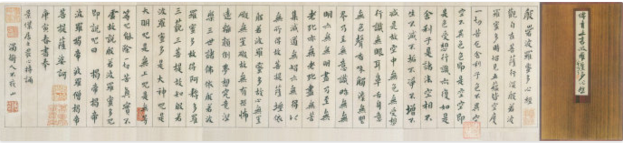 般若波羅蜜多心經
觀自在菩薩行深般若波
羅蜜多時照見五蘊皆空度
一切苦厄舍利子色不異空
空不異色色即是空空即
是色受想行識亦復如是
舍利子是諸法空相不
生不滅不垢不淨不增不
減是故空中無色無受想
行識無眼耳鼻舌身意
無色聲香味觸法無眼
界乃至無意識界無無
明亦無無明盡乃至無
老死亦無老死盡無苦
集滅道無智亦無得以
無所得故菩提薩埵依
般若波羅蜜多故心無罣
礙無罣礙故無有恐怖
遠離顛倒夢想究竟涅
槃三世諸佛依般若波
羅蜜多故得阿耨多羅
三藐三菩提故知般若
波羅蜜多是大神咒是
大明咒是無上咒是無
等等咒能除一切苦真實不
虛故說般若波羅蜜多咒
即說咒曰 揭帝揭帝
波羅揭帝 波羅僧揭帝
菩提薩婆訶